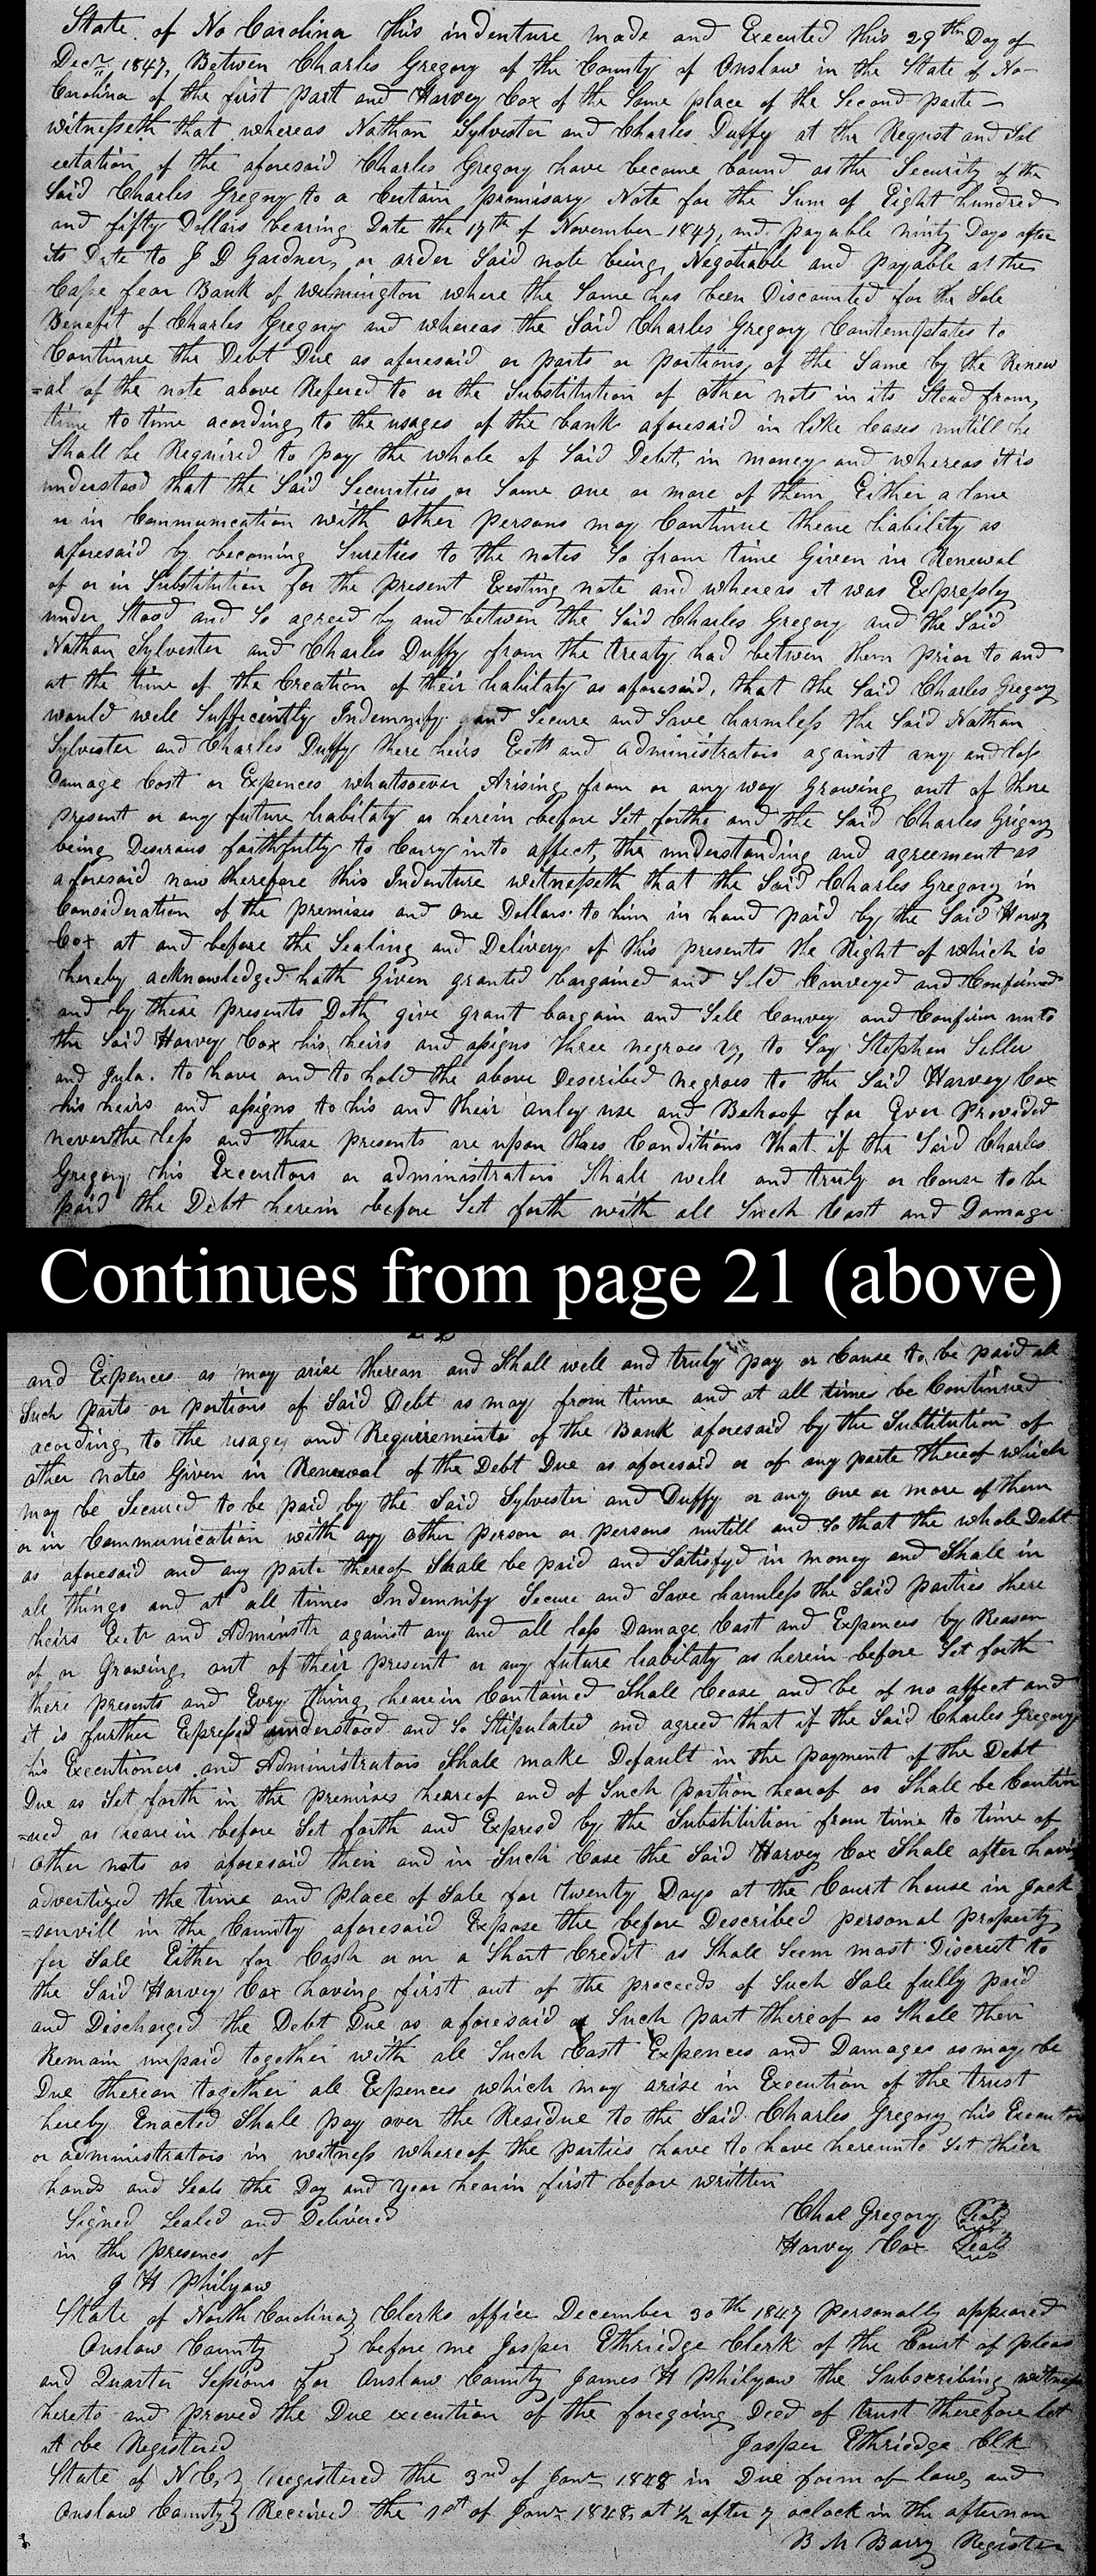 State of No Carolina this indenture made and Executed this 29th Day of
Decr 1847, Betwen Charles Gregory of the County of Onslaw in the State of No-
Carolina of the first Part and Harvey Cox of the Same place of the Second parte
witnesseth that whereas Nathan Sylvester and Charles Duffy at the Request and Sol
ecitation of the aforesaid Charles Gregory have become bound as the Security of the
Said Charles Gregory to a Certain promisary Note for the Sum of Eight hundred
and fifty Dollars bearing Date the 17th of November 1847, and payable ninty Days after
its Date to J D Gardner, or order Said note being Negotiable and payable at the
Cape fear Bank of wilmington where the Same has been Discounted for the Sole
Benefit of Charles Gregory and whereas the Said Charles Gregory Contemplates to
Continue the Debt Due as aforesaid or parts or portions of the Same by the Renew
=al of the note above Refered to or the Substitution of other nots in its Stead from
time to time acording to the usages of the bank aforesaid in like Cases untill he
Shall be Required to pay the whole of Said Debt, in money and whereas it is
understood that the Said Securities or Some one or more of them Either alone
or in Communication with other persons may Continue theare liability as
aforesaid by becoming Sureties to the notes So from time Given in Renewal
of or in Substitution for the present Existing note and whereas it was Expressley
under Stood and So agreed by and betwen the Said Charles Gregory and the Said
Nathan Sylvester and Charles Duffy from the treaty had betwen them prior to and
at the time of the Creation of their liabilaty as aforesaid, that the Said Charles Gregory
would well Sufficiently Indemnify and Secure and Save harmless the Said Nathan
Sylvester and Charles Duffy there heirs Exetr and administrators against any and loss
Damage Cost or Expences whatsoever Arising from or any way Growing out of there
present or any future liabilaty as herein before Set forthe and the Said Charles Grigory
being Desirous faithfully to Carry into affect, the understanding and agreement as
aforesaid now therefore this Indenture witnesseth that the Said Charles Gregory in
Consideration of the premises and One Dollars to him in hand paid by the Said Harvy
Cox at and before the Sealing and Delivery of this presents the Right of which is
hereby acknowledged hath Given granted bargained and Sold Conveyed and Confirmed
and by these presents Doth give grant bargain and Sell Convey and Confirm unto
the Said Harvey Cox his heirs and assigns three negroes viz to Say Stephen Seller
and Jula. to have and to hold the above Described negroes to the Said Harvey Cox
his heirs and assigns to his and their onley use and Behoof for Ever Provided
neverthe less and these presents are upon thaes Conditions that if the Said Charles
Gregory his Executors or administrators Shall well and truly or Couse to be
paid the Debt herein before Set forth with all Such Costt and Damage
Continues from page 21 (above)
22
and Expences as may arise therean and Shall well and truly pay or Couse to be paid all
Such parts or portions of Said Debt as may from time and at all times be Continued
acording to the usages and Requirements of the Bank aforesaid by the Subtitution of
other notes Given in Renewal of the Debt Due as aforesaid or of any parte thereof which
may be Secured to be paid by the Said Sylvester and Duffy or any one or more of them
or in Communication with any other person or persons untill and So that the whole Debt
as aforesaid and any parte thereof Shall be paid and Satisfyd in money and Shall in
all things and at all times Indemnify Secure and Save harmless the Said parties there
heirs Exetr and Adminstr againstt any and all loss Damage Cost and Expences by Reason
of or Growing out of their present or any future liabilaty as herein before Set forth
there presents and Every thing hearein Contained Shall Cease and be of no affect and
it is further Expressd understood and So Stipulated and agreed that if the Said Charles Gregory
his Executioners and Administrators Shall make Default in the payment of the Debt
Due as Set forth in the premises heareof and of Such portion hearof as Shall be Contin
=ued as hearein before Set forth and Expresd by the Substitution from time to time of
other nots as aforesaid then and in Such Case the Said Harvey Cox Shall after having
advertized the time and place of Sale for twenty Days at the Court house in Jack
=sonvill in the County aforesaid Expose the before Described personal property
for Sale Either for Cash or on a Short Credit as Shall Seem most Discreet to
the Said Harvey Cox having first out of the proceeds of Such Sale fully paid
and Discharged the Debt Due as aforesaid or Such part thereof as Shall then
Remain unpaid together with all Such Costt Expences and Damages as may be
Due therean together all Expences which may arise in Execution of the trust
hereby Enacted Shall pay over the Residue to the Said Charles Gregory his Executors
or administrators in wittness whereof the parties have to have hereunto Set thier
hands and Seals the Day and year hearin first before written
Signed Sealed and Delivered Chal Gregory Seal
in the presence of Harvey Cox Seal
J H Philyaw
State of North Carolina } Clerks office December 30th 1847 personally appeared
Onslaw County } before me Jasper Ethriedge Clerk of the Court of pleas
and Quarter Sessions for Onslaw County James H Philyaw the Subscribing witness
hereto and proved the Due execution of the foregoing Deed of trust therefore let
it be Registered Jasper Ethriedge Clk
State of N C, } registered the 3rd of Janr 1848 in Due form of law, and
Onslaw County } Received the 1st of Janr 1848, at ½ after 7 oclock in the afternon
B M Barry Register